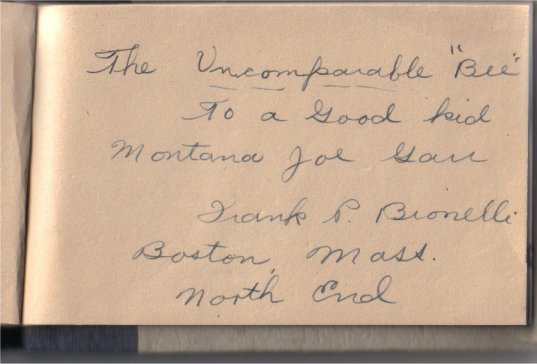 The Uncomparable "Bee"
To a Good kid
Montana Joe Garr
Frank P. Bionelli
Boston, Mass.
North End